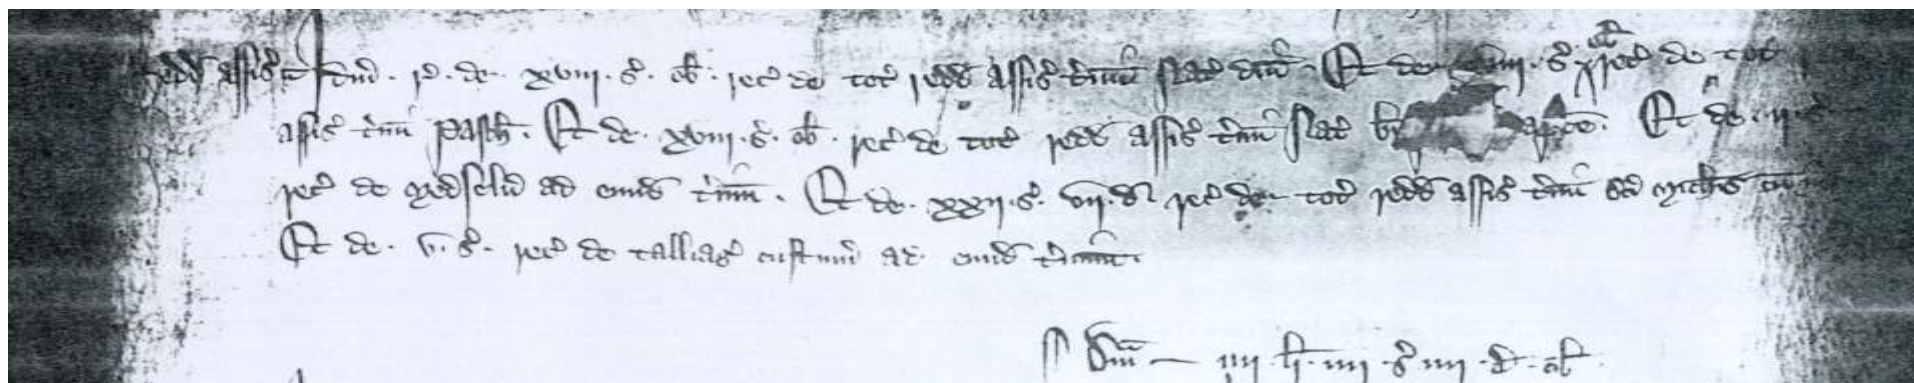 redd assis t̄ Idm̄ r̄ de xviii s̄ ob rec̄ de tot̄ redd assis t̄mi Nat̄ dn̄i Et de s̄ ob rec̄ de tot̄
assis t̄mi Pasch̄ Et de xviii s̄ ob rec̄ de tot̄ redd assis t̄mi Nat̄ b̄i Et de ii s̄
rec̄ de Medselu ad eund t̄mi Et de xxii s̄ vii d rec̄ de tot̄ redd assis t̄mi sc̄i Mich̄is
Et de v s̄ rec̄ de tallag̃ custum̄ ad eund t̄mi
Sm̄ iiii li iiii s̄ iiii d ob